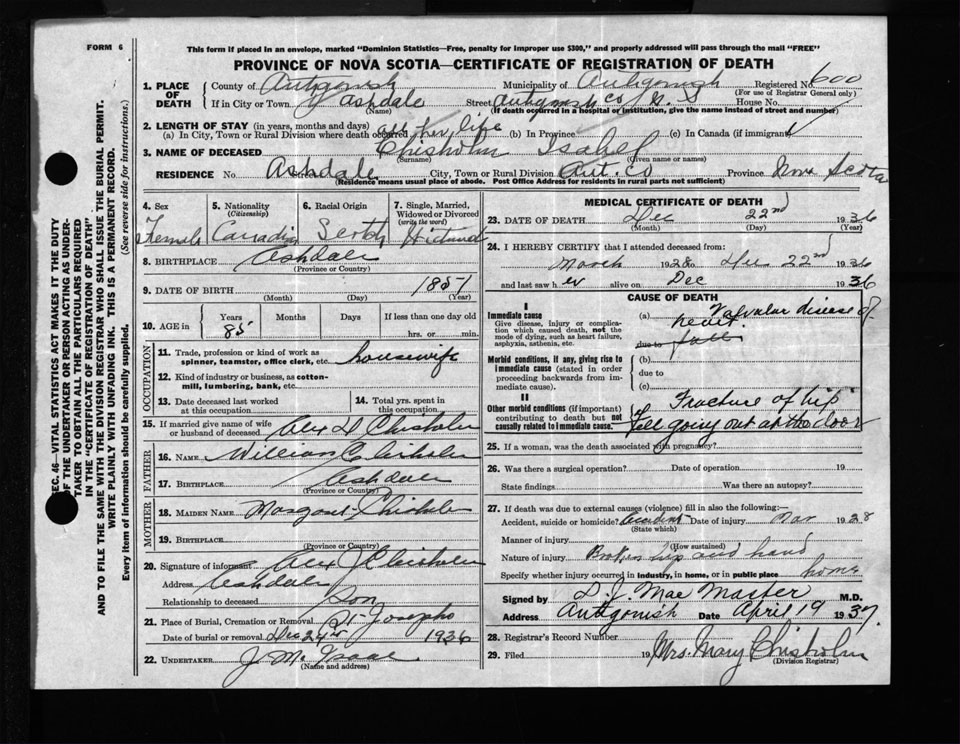 FORM 6
This form if placed in an envelope, marked "Dominion Statistics—Free, penalty for improper use $300," and properly addressed will pass through the mail "FREE"
PROVINCE OF NOVA SCOTIA—CERTIFICATE OF REGISTRATION OF DEATH
SEC. 46—VITAL STATISTICS ACT MAKES IT THE DUTY
OF THE UNDERTAKER OR PERSON ACTING AS UNDER-
TAKER TO OBTAIN ALL THE PARTICULARS REQUIRED
IN THE "CERTIFICATE OF REGISTRATION OF DEATH"
AND TO FILE THE SAME WITH THE DIVISION REGISTRAR WHO SHALL ISSUE THE BURIAL PERMIT.
WRITE PLAINLY WITH UNFADING INK. THIS IS A PERMANENT RECORD.
Every item of information should be carefully supplied. (See reverse side for instructions.)
1. PLACE OF DEATH
County of Antigonish Municipality of Antigonish Registered No. 600
(For use of Registrar General only)
If in City or Town Ashdale Street Antigonish Co N. S House No.
(Name) (If death occurred in a hospital or institution, give the name instead of street and number)
2. LENGTH OF STAY (in years, months and days)
(a) In City, Town or Rural Division where death occurred all her life (b) In Province (c) In Canada (if immigrant)
3. NAME OF DECEASED Chisholm Isabel
(Surname) (Given name or names)
RESIDENCE No. Ashdale City, Town or Rural Division Ant. Co Province Nova Scotia
(Residence means usual place of abode. Post Office Address for residents in rural parts not sufficient)
4. Sex Female
5. Nationality (Citizenship) Canadian
6. Racial Origin Scotch
7. Single, Married, Widowed or Divorced (write the word) Widowed
8. BIRTHPLACE Ashdale
(Province or Country)
9. DATE OF BIRTH 1851
(Month) (Day) (Year)
10. AGE in Years 85 Months Days If less than one day old
hrs. or min.
OCCUPATION
11. Trade, profession or kind of work as spinner, teamster, office clerk, etc. housewife
12. Kind of industry or business, as cotton-mill, lumbering, bank, etc.
13. Date deceased last worked at this occupation
14. Total yrs. spent in this occupation
15. If married give name of wife or husband of deceased Alex D Chisholm
FATHER
16. NAME William Chisholm
17. BIRTHPLACE Ashdale
(Province or Country)
MOTHER
18. MAIDEN NAME Margaret Chisholm
19. BIRTHPLACE
(Province or Country)
20. Signature of informant Alex J Chisholm
Address Ashdale
Relationship to deceased Son
21. Place of Burial, Cremation or Removal St Josephs
Date of burial or removal Dec 24th 1936
22. UNDERTAKER J. M. Isaac
(Name and address)
MEDICAL CERTIFICATE OF DEATH
23. DATE OF DEATH Dec 22nd 1936
(Month) (Day) (Year)
24. I HEREBY CERTIFY that I attended deceased from:
March 1928 to Dec 22nd 1936
and last saw her alive on Dec 1936
CAUSE OF DEATH
I
Immediate cause
Give disease, injury or complication which caused death, not the mode of dying, such as heart failure, asphyxia, asthenia, etc.
(a) Valvular disease of heart.
due to fall
Morbid conditions, if any, giving rise to immediate cause (stated in order proceeding backwards from immediate cause).
(b)
due to
(c)
II
Other morbid conditions (if important) contributing to death but not causally related to immediate cause.
Fracture of hip
Fell going out at the door
25. If a woman, was the death associated with pregnancy?
26. Was there a surgical operation? Date of operation 19
State findings Was there an autopsy?
27. If death was due to external causes (violence) fill in also the following:
Accident, suicide or homicide? Accident Date of injury Mar 1928
(State which)
Manner of injury
(How sustained)
Nature of injury Broken hip and hand
Specify whether injury occurred in industry, in home, or in public place home
Signed by L. J. MacMaster M.D.
Address Antigonish Date April 19 1937.
28. Registrar's Record Number
29. Filed 19 Mrs. Mary Chisholm
(Division Registrar)